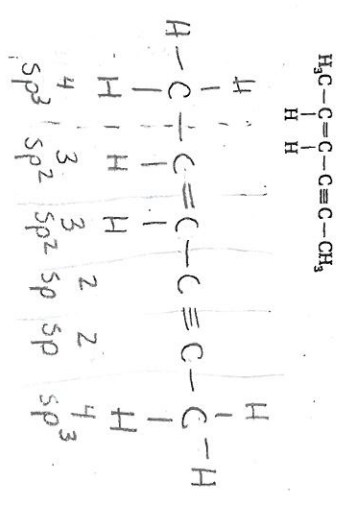 H₃C–C=C–C≡C–CH₃
H H
H H
H–C–C=C–C≡C–C–H
H H H H
4 3 3 2 2 4
sp³ sp² sp² sp sp sp³